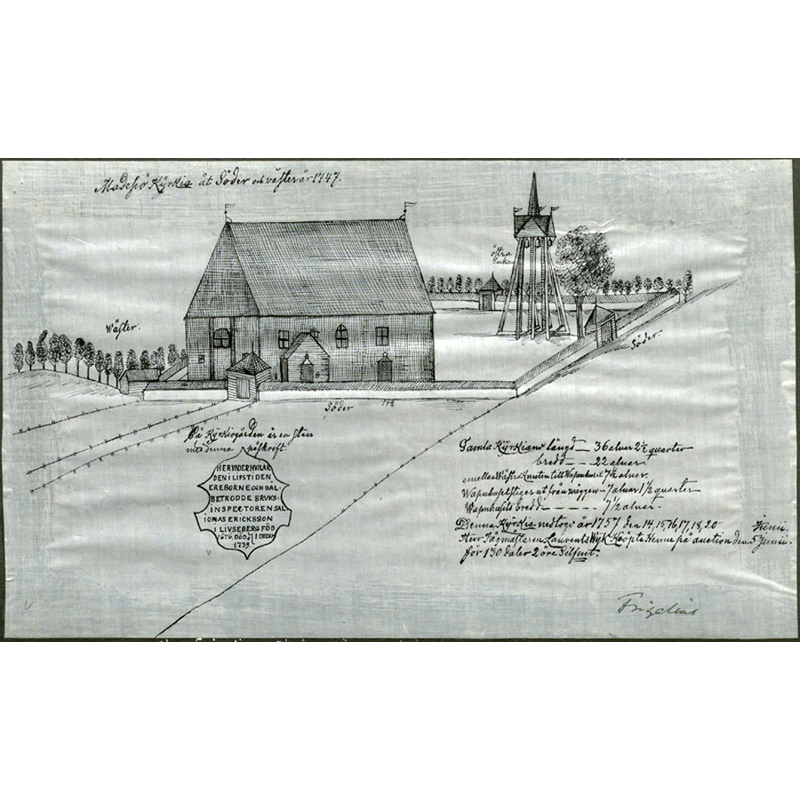 Madesiö Kÿrkia åt Söder och väster år 1747.
östra
Wäster.
Söder.
Söder
På Kyrkiogården är en sten
med denna påskrift.
HER UNDER HVILAR
DEN I LIFSTIDEN
EREBORNE OCH VÄL
BETRODDE BRUKS-
INSPECTOREN SAL
IONAS ERICKSSON
I LIVSEBERG FÖD
1676. DÖD
1739.
Gamla Kÿrkians längd — 36 alner 2½ quarter
bredd — — 22 alnar
emellan Wästra Knuten till Wapenhuset 7½ alnar.
Wapnhuset stiger ut från väggen — 7 alnar 1½ quarter
Wapnhusets bredd — — — — — 7½ alnar.
Denna Kÿrkia nedtogs år 1757 den 14, 15, 16, 17, 18, 20 Junii.
Herr Jägmästaren Laurents Wyk Köpte Henne på auction den 5 Junii.
för 130 daler 2 öre Silfmt.
Frigelius